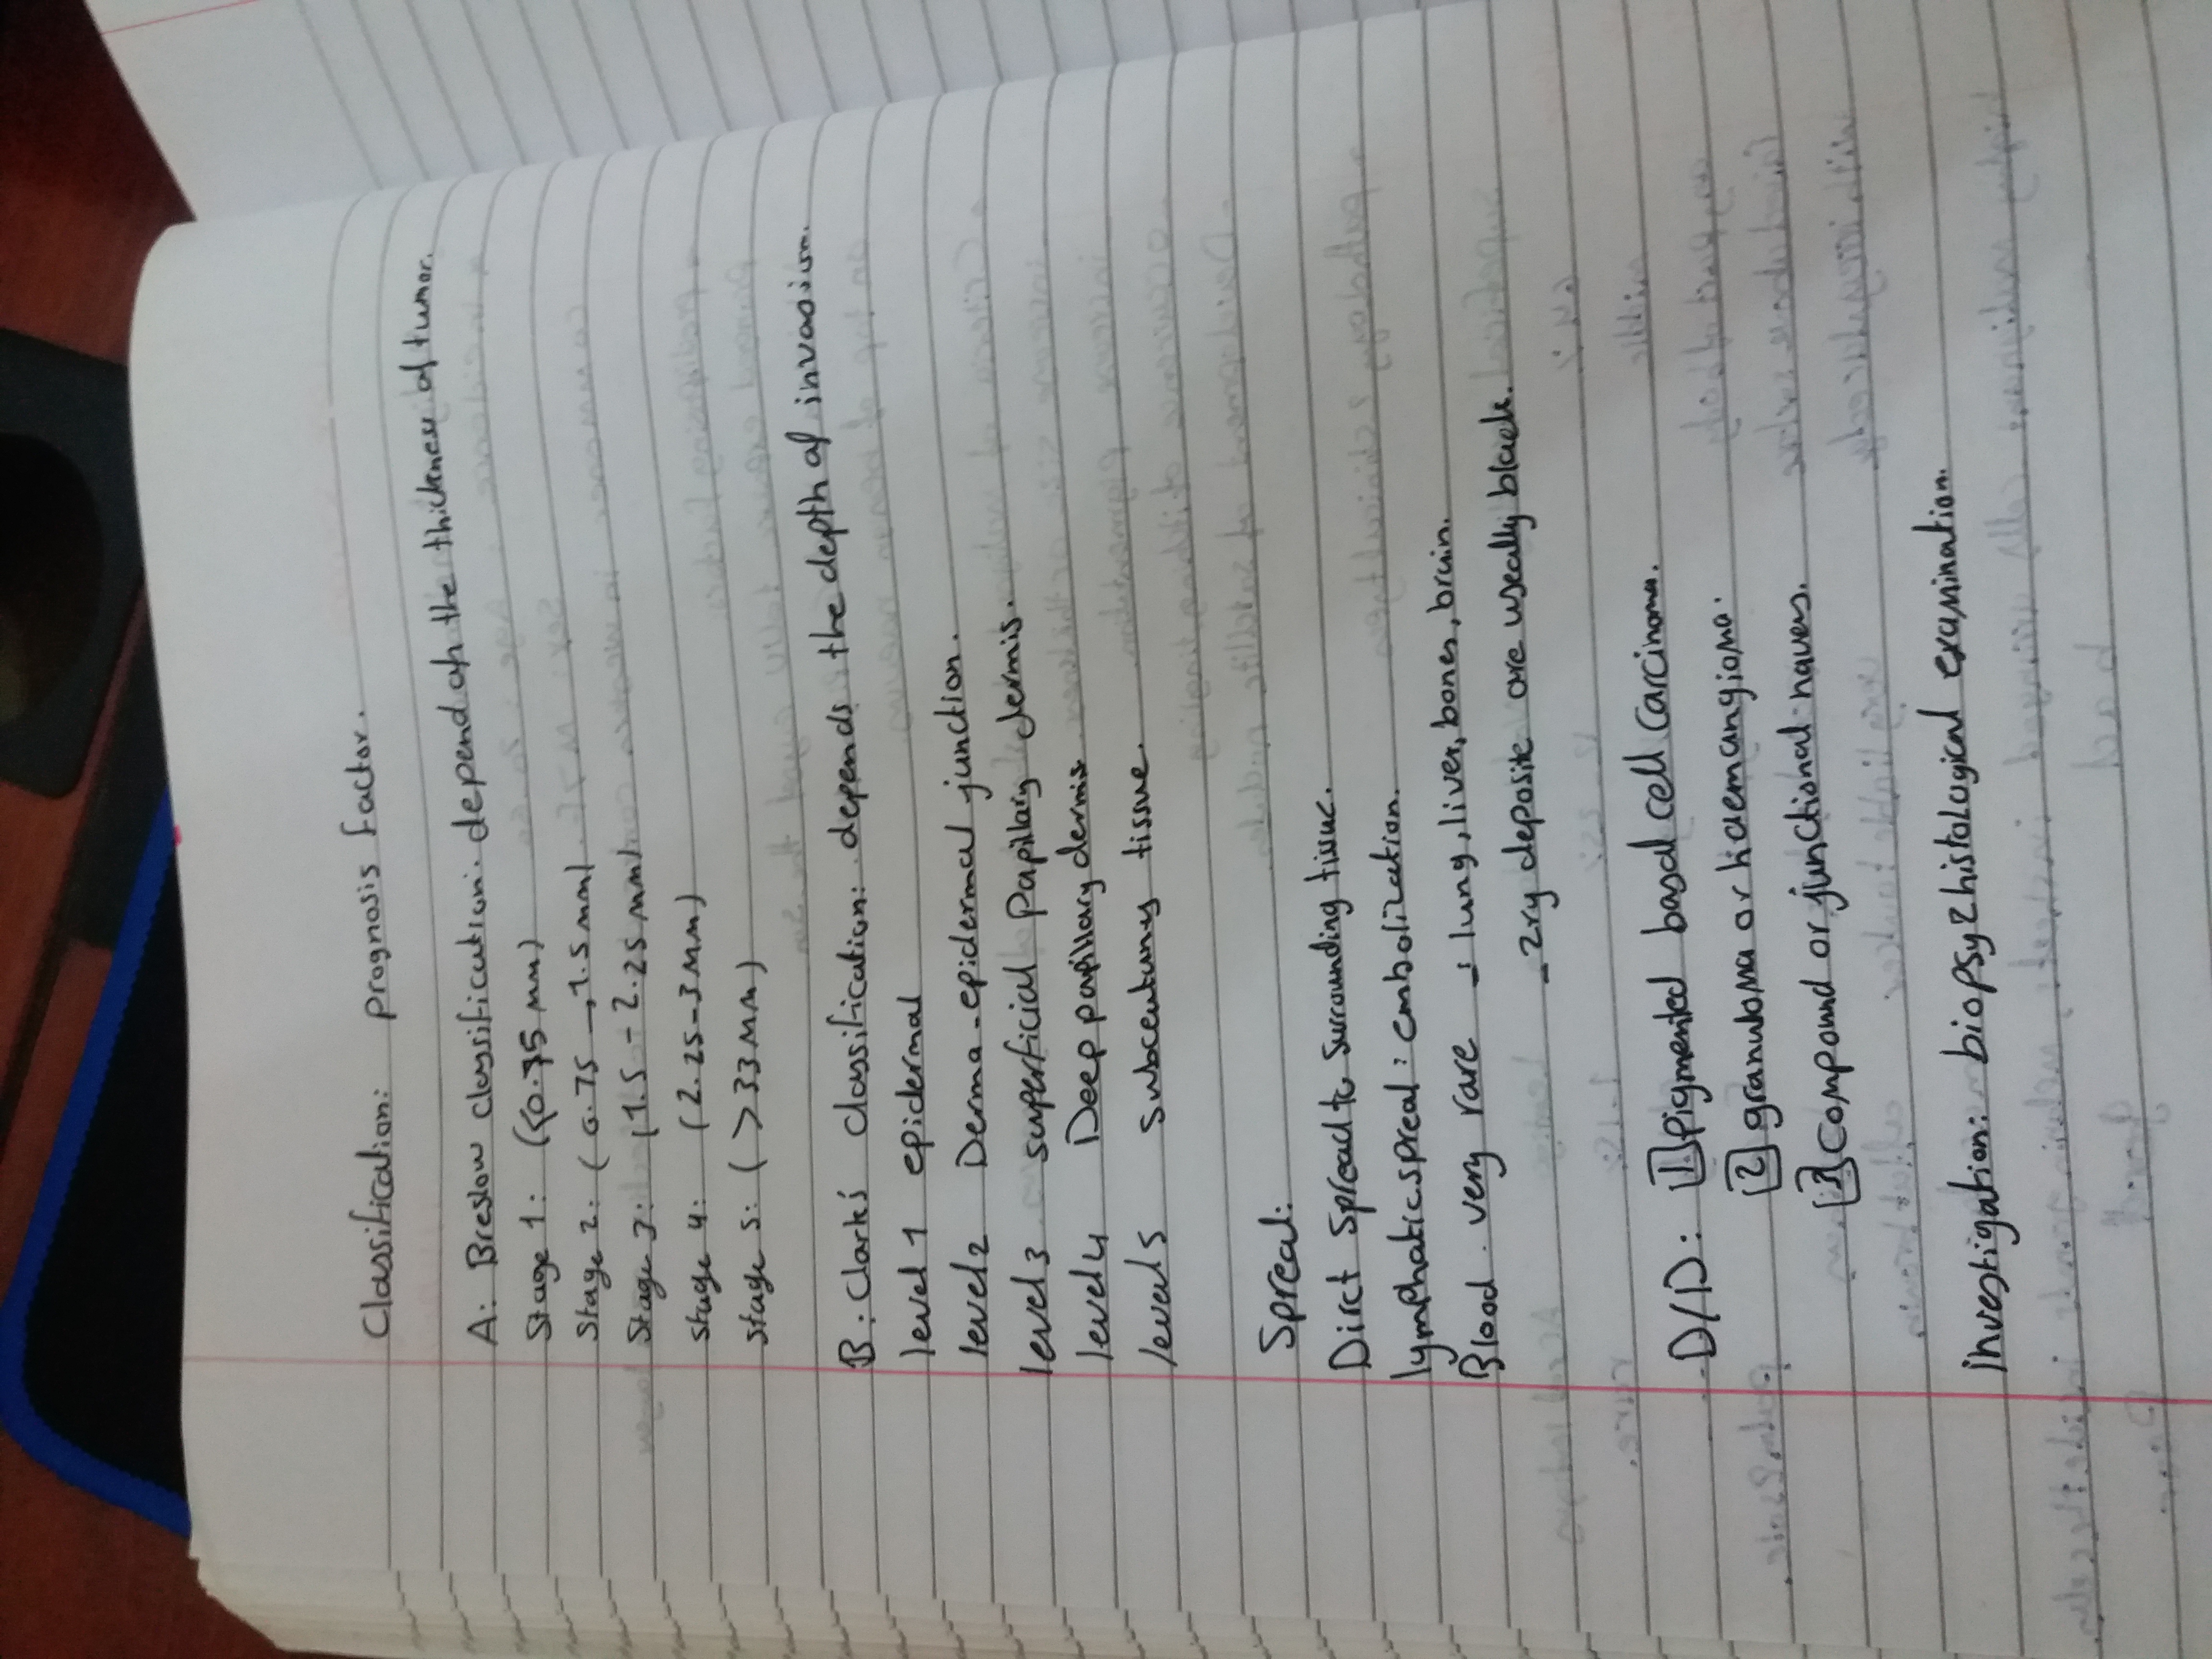 Classification: prognosis factor.
A: Breslow classification: depend on the thickness of tumor.
Stage 1: (<0.75 mm)
Stage 2: (0.75 → 1.5 mm)
Stage 3: (1.5 - 2.25 mm)
Stage 4: (2.25 - 3 mm)
Stage 5: (>33mm)
B: Clark's classification: depends the depth of invasion.
level 1 epidermal
level 2 Derma-epidermal junction.
level 3 superficial papillary dermis.
level 4 Deep papillary dermis
level 5 subcentuny tissue.
Spread:
Dirct spread to surrounding tissue.
lymphatic spread: embolization.
Blood. very rare → lung, liver, bones, brain.
→ 2ry deposite are useally black.
D/D: 1 pigmented basal cell carcinoma.
2 granuloma or haemangioma.
3 compound or junctional naves.
investigation: biopsy 2 histological examination.